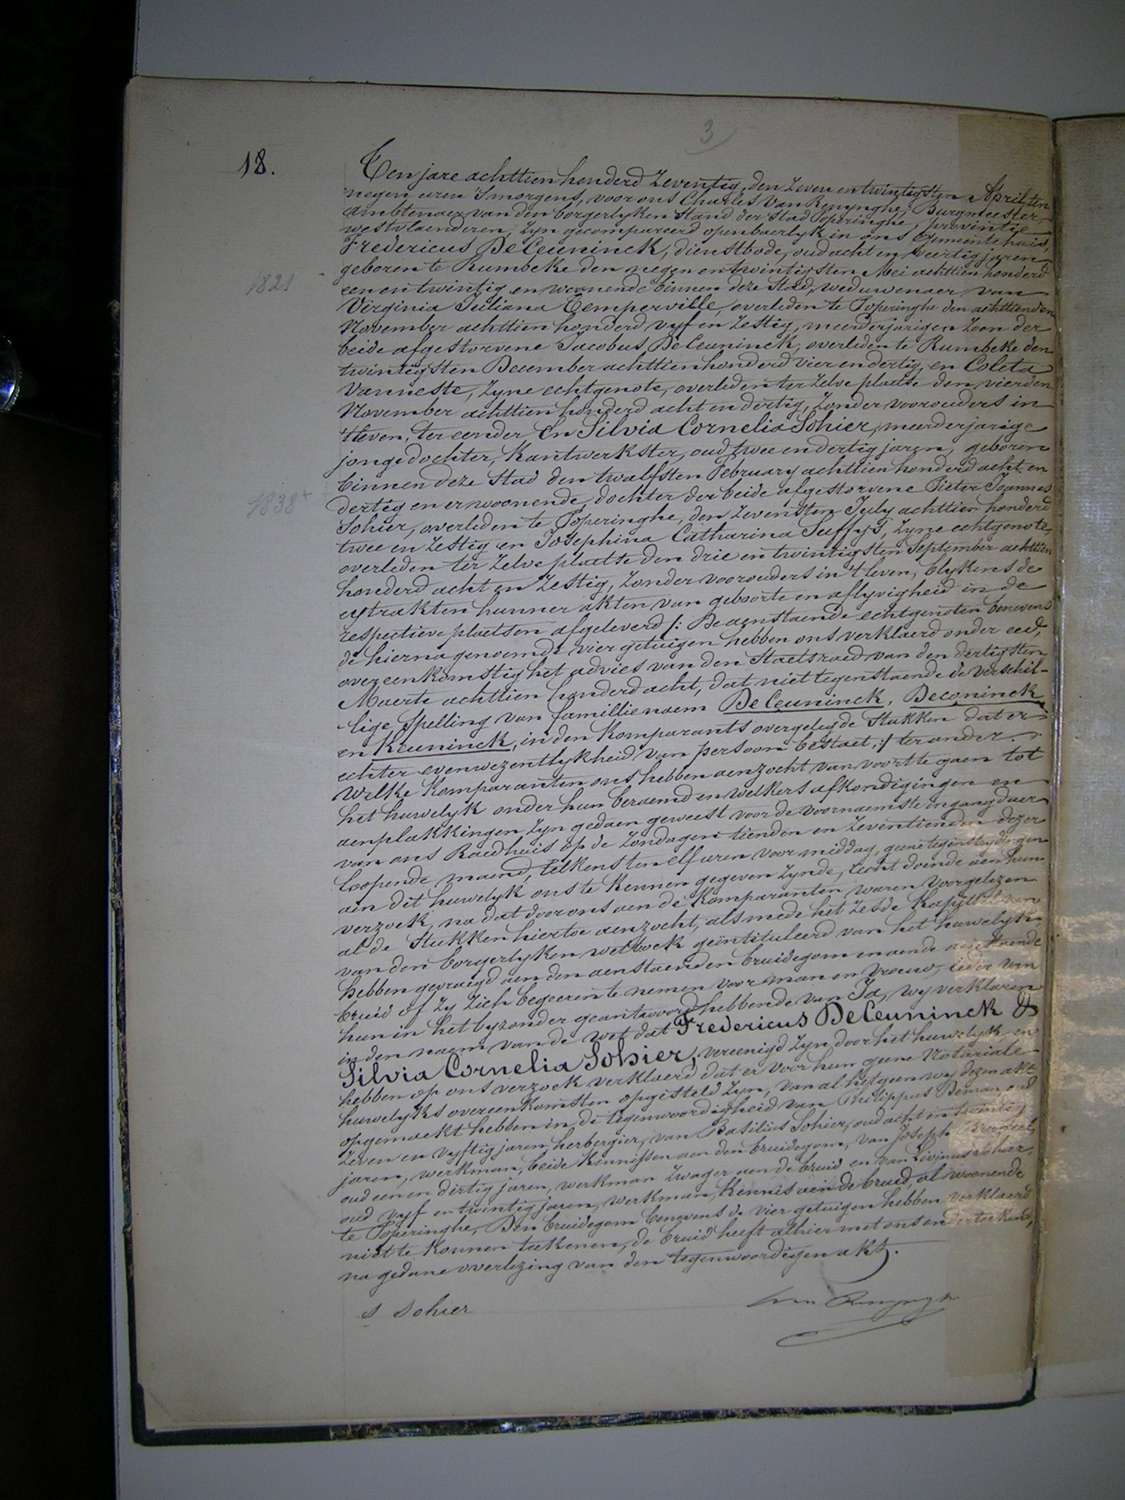 3
18.
Ten jare achttien honderd zeventig, den zeven en twintigsten April ten
negen uren 's morgens, voor ons Charles Van Renynghe, Burgmeester
ambtenaer van den borgerlyken stand der stad Poperinghe, provintie
westvlaenderen, zyn gecompareerd openbaerlyk in ons Gemeentehuis,
Fredericus De Ceuninck, dienstbode, oud acht en veertig jaren
geboren te Rumbeke den negen en twintigsten Mei achttien honderd
1821
een en twintig en woonende binnen deze stad, weduwenaer van
Virginia Juliana Temperville, overleden te Poperinghe den achttienden
November achttien honderd vyf en zestig, meerderjarigen zoon der
beide afgestorvene Jacobus De Ceuninck, overleden te Rumbeke den
twintigsten December achttien honderd vier en dertig, en Coleta
Vanneste, zyne echtgenote, overleden ter zelve plaatse den vierden
November achttien honderd acht en dertig, zonder voorouders in
't leven, ter eender En Silvia Cornelia Sohier, meerderjarige
jonge dochter, kantwerkster, oud twee en dertig jaren, geboren
binnen deze Stad den twalfsten February achttien honderd acht en
1838
dertig en er woonende, dochter der beide afgestorvene Pieter Joannes
Sohier, overleden te Poperinghe, den zevensten July achttien honderd
twee en zestig en Josephina Catharina Suffys, zyne echtgenote
overleden ter zelve plaatse den drie en twintigsten September achttien
honderd acht en zestig, zonder voorouders in 't leven, blykens de
extrakten hunner akten van geboorte en aflyvigheid in de
respectieve plaatsen afgeleverd /: De aenstaende echtgenoten benevens
de hierna genoemde vier getuigen hebben ons verklaerd onder eed,
overeenkomstig het advies van den Staetsraed van den dertigsten
Maerte achttien honderd acht, dat niet tegenstaende de verschil-
lige spelling van familienaem De Ceuninck, Deconinck
en Keuninck, in den komparants overgeleyde stukken dat er
echter evenwezentlykheid van persoon bestaet :/ ter ander.
Welke komparanten ons hebben aenzocht van voort te gaen tot
het huwelyk onder hun beraemd en welkers afkondigingen en
aenplakkingen zyn gedaen geweest voor de voornaemste ingang daer
van ons Raedhuis op de zondagen tienden en zeventienden dezer
loopende maend, telkens ten elf uren voor middag, geene tegenstrydigen
aen dit huwelyk ons te kennen gegeven zynde, recht doende aen hun
verzoek, na dat door ons aen de komparanten waren voorgelezen
al de stukken hiertoe aenzocht, als mede het zesde kapittel van
van den borgerlyken wetboek geintituleerd van het huwelyk
hebben gevraegd aen den aenstaenden bruidegom en aende aenstaende
bruid of zy zich begeeren te nemen voor man en vrouw, ieder van
hun in het byzonder geantwoord hebbende van Ja, wy verklaren
in den naem van de wet dat Fredericus De Ceuninck &
Silvia Cornelia Sohier, vereenigd zyn door het huwelyk en
hebben op ons verzoek verklaerd dat er voor hun geene Notariale
huwelyks overeenkomsten opgesteld zyn, van al hetgeen wy dezen akt
opgemaekt hebben in de tegenwoordigheid van Philippus Deman oud
zeven en vyftig jaren herbergier, van Basilius Sohier, oud acht en twintig
jaren, werkman, beide kennissen aen den bruidegom, van Joseph
oud een en dertig jaren, werkman zwager aen de bruid en van Livinus Sohier
oud vyf en twintig jaren, werkman, kennis aen de bruid, al woonende
te Poperinghe, Den bruidegom benevens de vier getuigen hebben verklaerd
niet te konnen teekenen, de bruid heeft alhier met ons onderteekend,
na gedane overlezing van den tegenwoordigen akt.
S Sohier
Van Renynghe